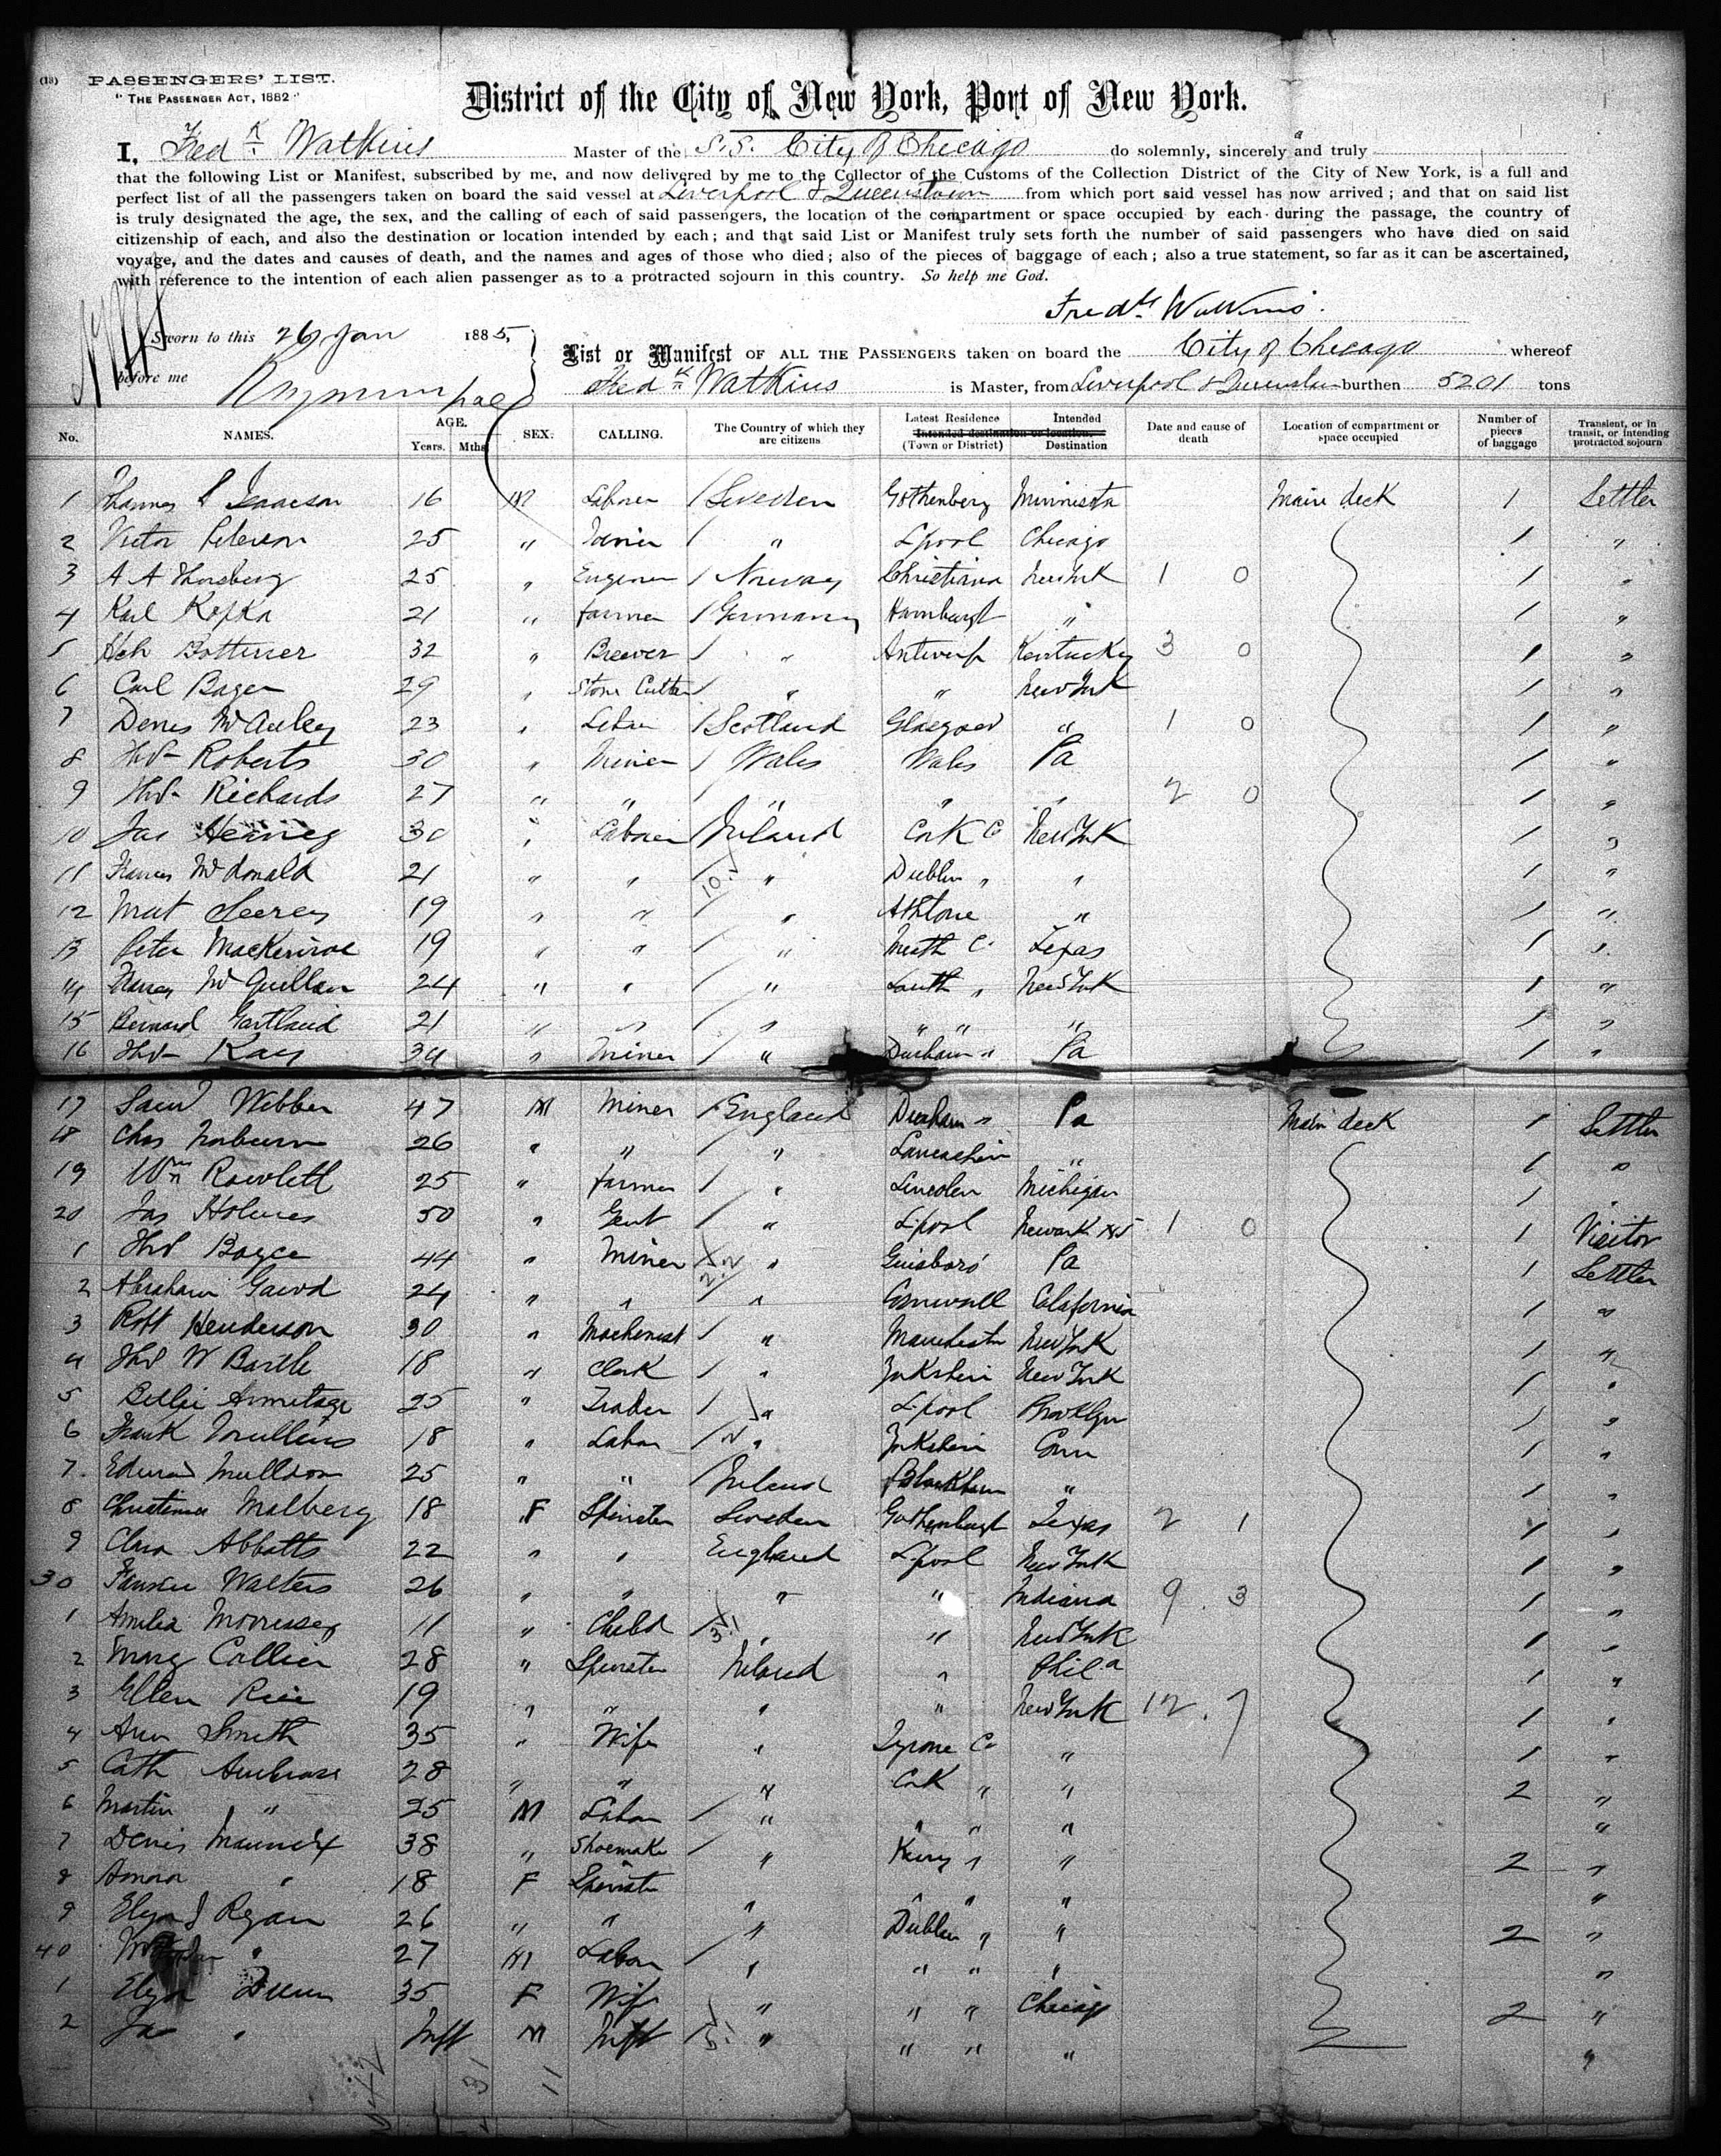 (13) PASSENGERS' LIST.
"THE PASSENGER ACT, 1882"
District of the City of New York, Port of New York.
I, Fredk Watkins Master of the S.S. City of Chicago do solemnly, sincerely and truly
that the following List or Manifest, subscribed by me, and now delivered by me to the Collector of the Customs of the Collection District of the City of New York, is a full and
perfect list of all the passengers taken on board the said vessel at Liverpool & Queenstown from which port said vessel has now arrived; and that on said list
is truly designated the age, the sex, and the calling of each of said passengers, the location of the compartment or space occupied by each during the passage, the country of
citizenship of each, and also the destination or location intended by each; and that said List or Manifest truly sets forth the number of said passengers who have died on said
voyage, and the dates and causes of death, and the names and ages of those who died; also of the pieces of baggage of each; also a true statement, so far as it can be ascertained,
with reference to the intention of each alien passenger as to a protracted sojourn in this country. So help me God.
Fredk Watkins.
Sworn to this 26 Jan 1885,
before me
List or Manifest OF ALL THE PASSENGERS taken on board the City of Chicago whereof
Fredk Watkins is Master, from Liverpool & Queenstown burthen 5201 tons
No. NAMES. AGE. Years. Mths. SEX. CALLING. The Country of which they are citizens Latest Residence Intended destination or location. (Town or District) Intended Destination Date and cause of death Location of compartment or space occupied Number of pieces of baggage Transient, or in transit, or intending protracted sojourn
1 Isaacson 16 M Laborer Sweden Gothenberg Minnisota Main deck 1 Settler
2 Victor Peterson 25 " " Lpool Chicago 1 "
3 A A Thorsberg 25 " Engineer Norway Christiana New York 1 0 1 "
4 Karl Kofka 21 " Farmer Germany Hamburgh " 1 "
5 32 " Brewer " Antwerp Kentucky 3 0 1 "
6 Carl Bager 29 " Stone Cutter " " New York 1 "
7 Denis McAuley 23 " Labor Scotland Glasgow " 1 0 1 "
8 Thos Roberts 30 " Miner Wales Wales Pa 1 "
9 Thos Richards 27 " " " " " 2 0 1 "
10 Jas 30 " Laborer Ireland Cork Co New York 1 "
11 Francis McDonald 21 " " " Dublin " " 1 "
12 Mat Seerey 19 " " " Athlone " 1 "
13 Peter 19 " " " Meath Co Texas 1 "
14 McQuillan 24 " " " Louth " New York 1 "
15 Bernard Gartland 21 " " " " " " 1 "
16 Thos Kay 34 " Miner " Durham " Pa 1 "
17 Saml Webber 47 M Miner England Durham " Pa Main deck 1 Settler
18 Chas 26 " " " Lancashire " 1 "
19 Wm Rowlett 25 " Farmer " Lincoln Michigan 1 "
20 Jas Holmes 50 " Gent " Lpool Newark 1 0 1 Visitor
1 Thos Boyce 44 " Miner " Guisboro Pa 1 Settler
2 Abraham 24 " " " Cornwall California 1 "
3 Robt Henderson 30 " Machinist " Manchester New York 1 "
4 Thos W 18 " Clerk " Yorkshire New York 1 "
5 Armitage 25 " " Lpool Brooklyn 1 "
6 Frank Mullins 18 " Labor " Yorkshire Conn 1 "
7 Edward Mulldoon 25 " " Ireland Blackburn " 1 "
8 Christina Malberg 18 F Spinster Sweden Gothenburgh Texas 2 1 1 "
9 Clara Abbotts 22 " " England Lpool New York 1 "
30 Walters 26 " " " " Indiana 9 3 1 "
1 Amelia Morrissey 11 " Child " " New York 1 "
2 Mary Collier 28 " Spinster Ireland " Phila 1 "
3 Ellen Rice 19 " " " " New York 12. 7 1 "
4 Ann Smith 35 " Wife " Tyrone Co " 1 "
5 Cath Ambrose 28 " " " Cork " " 2 "
6 Martin " 25 M Labor " " " " "
7 Denis 38 " Shoemaker " Kerry " " 2 "
8 " 18 F Spinster " " " " "
9 Ryan 26 " " " Dublin " " 2 "
40 " 27 M Labor " " " " "
1 35 F Wife " " " Chicago 2 "
2 Jas " Inft M Inft " " " " "